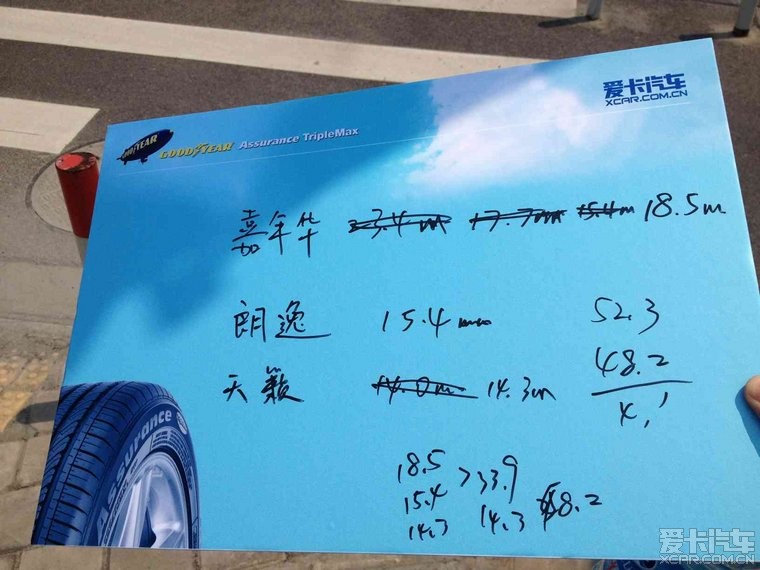 爱卡汽车
XCAR.COM.CN
GOODYEAR GOODYEAR Assurance TripleMax
嘉年华 23.4m 17.7m 15.4m 18.5m
朗逸 15.4m
52.3
天籁 14.0m 14.3m
48.2
4.1
18.5 > 33.9
15.4
14.3 14.3 48.2
Assurance
爱卡汽车
XCAR.COM.CN